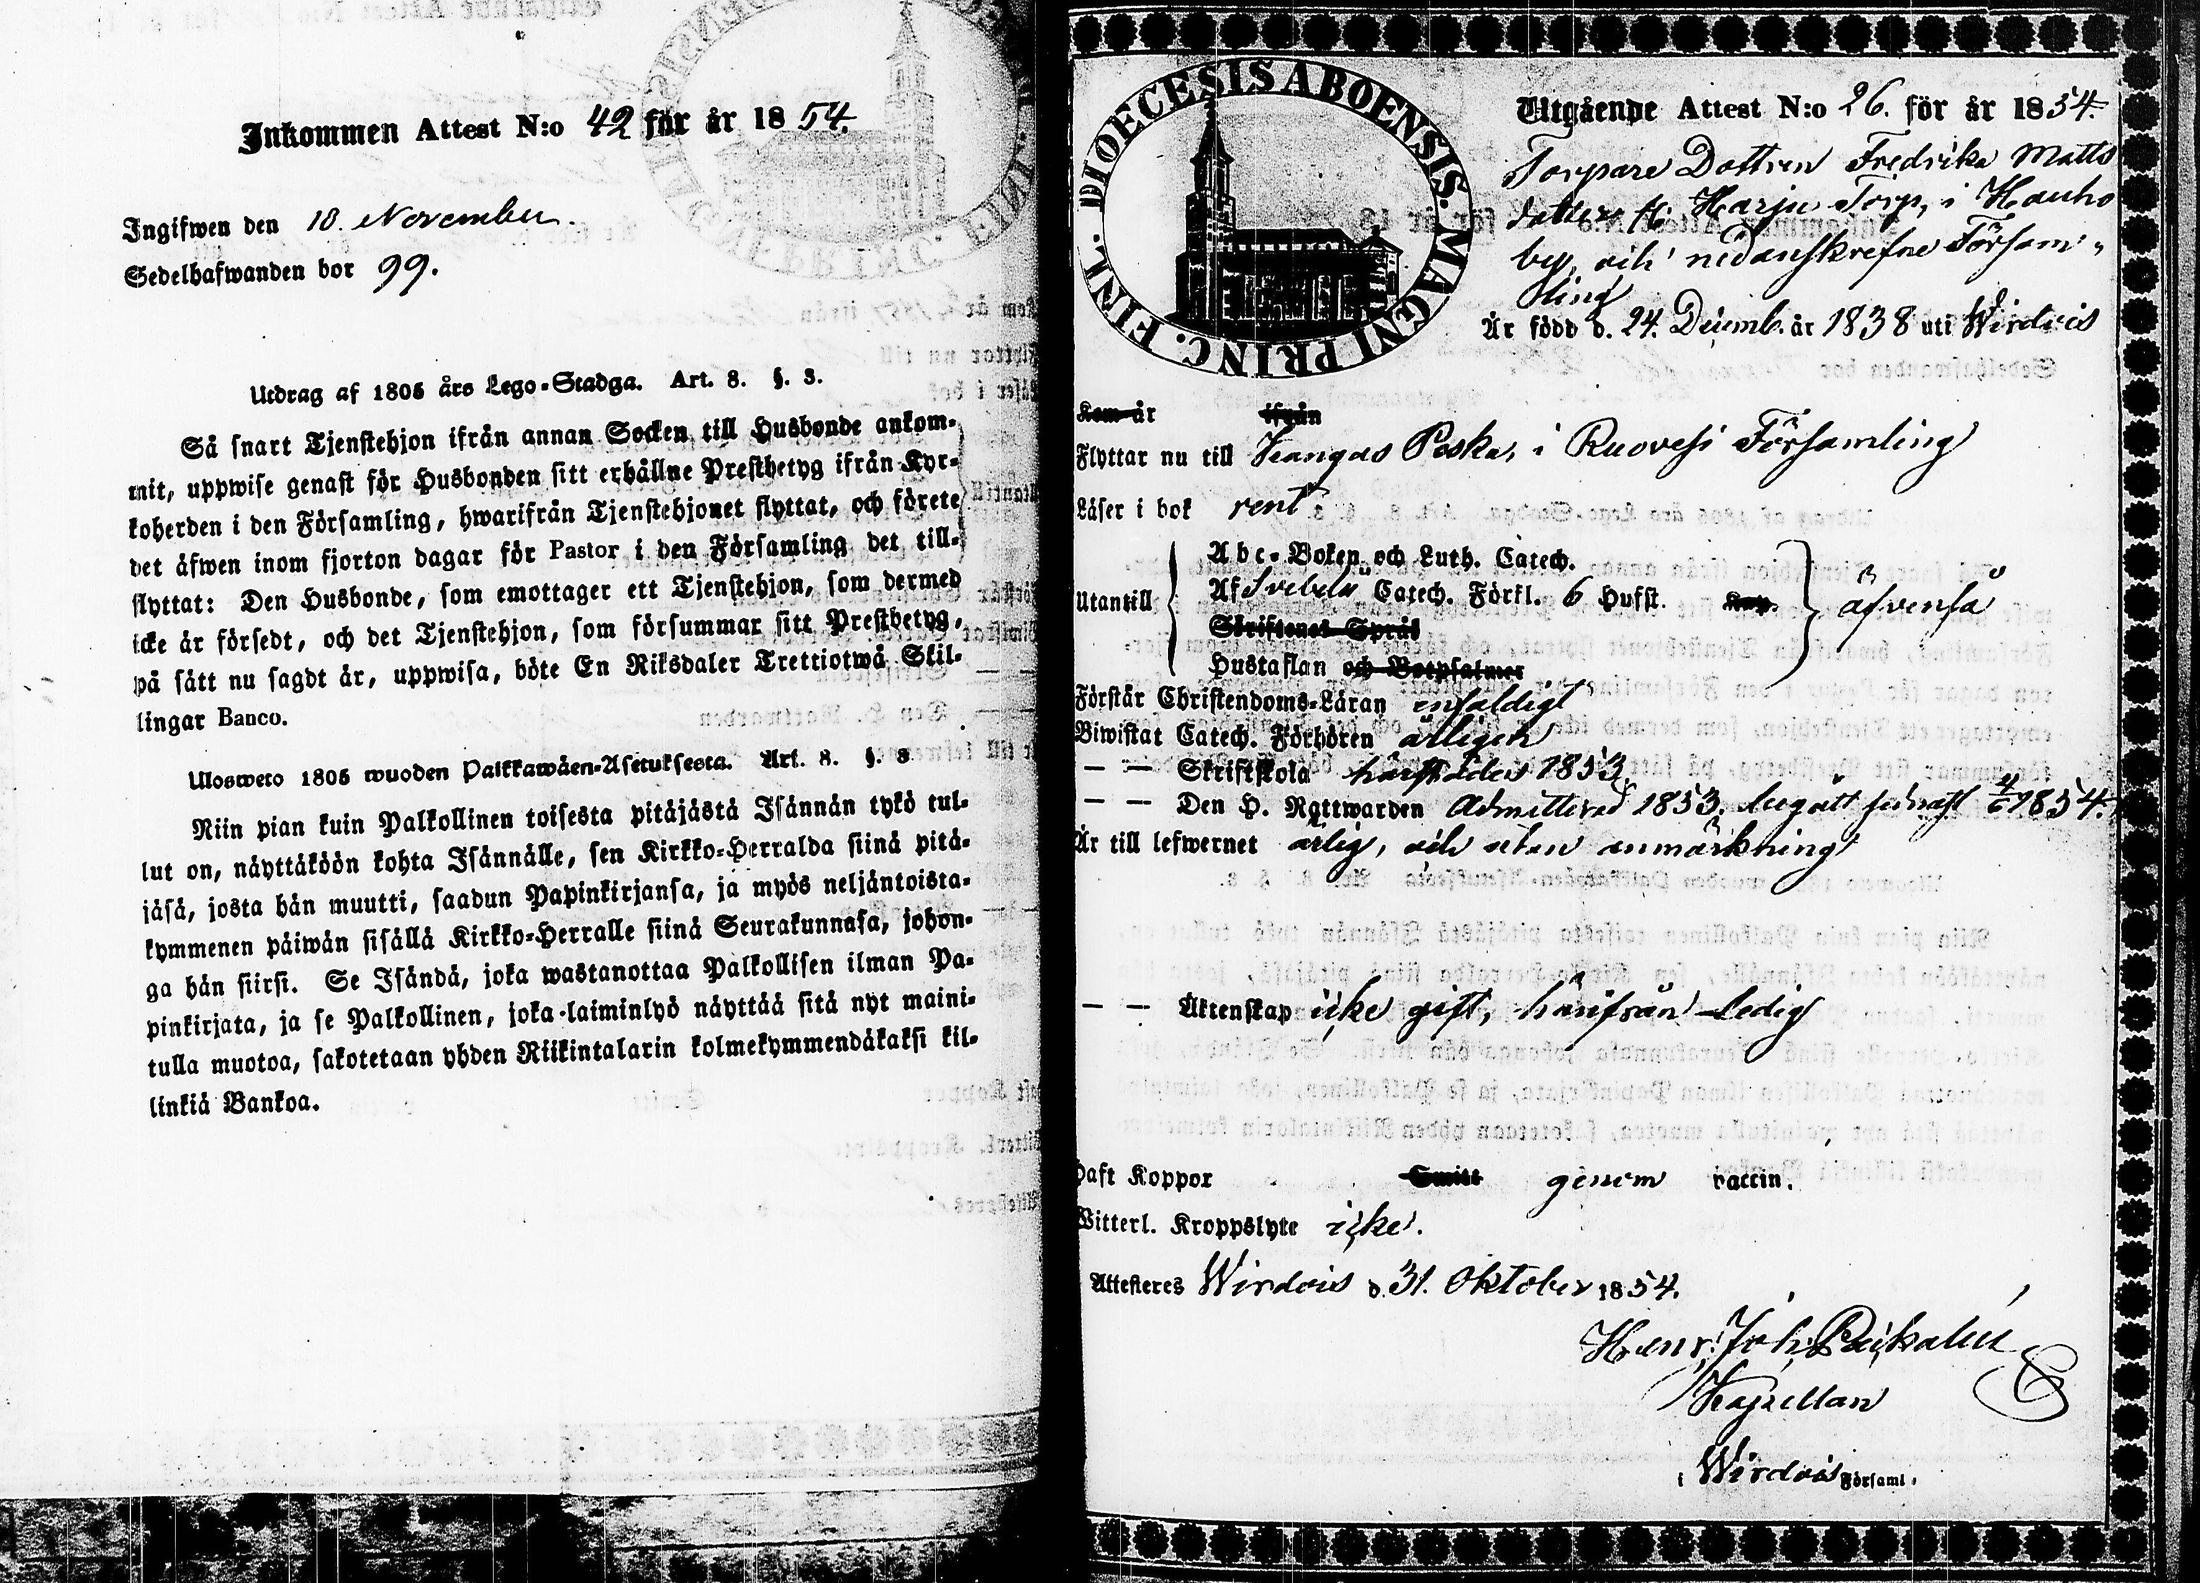 Inkommen Attest N:o 42 för år 1854.
Ingifwen den 18. November.
Sedelhafwanden bor 99.
Utdrag af 1805 års Lego-Stadga. Art. 8. §. 3.
Så snart Tjenstehjon ifrån annan Socken till Husbonde ankom-
mit, uppwise genast för Husbonden sitt erhållne Prestbetyg ifrån Kyr-
koherden i den Församling, hwarifrån Tjenstehjonet flyttat, och förete
det äfwen inom fjorton dagar för Pastor i den Församling det till-
flyttat: Den Husbonde, som emottager ett Tjenstehjon, som dermed
icke är försedt, och det Tjenstehjon, som försummar sitt Prestbetyg,
på sätt nu sagdt är, uppwisa, böte En Riksdaler Trettiotwå Skil-
lingar Banco.
Ulosweto 1805 wuoden Palkkawäen-Asetuksesta. Art. 8. §. 3
Niin pian kuin Palkollinen toisesta pitäjästä Isännän tykö tul-
lut on, näyttäköön kohta Isännälle, sen Kirkko-Herralda siinä pitä-
jäsä, josta hän muutti, saadun Papinkirjansa, ja myös neljäntoista-
kymmenen päiwän sisällä Kirkko-Herralle siinä Seurakunnasa, johon-
ga hän siirsi. Se Isändä, joka wastanottaa Palkollisen ilman Pa-
pinkirjata, ja se Palkollinen, joka laiminlyö näyttää sitä nyt maini-
tulla muotoa, sakotetaan yhden Riikintalarin kolmekymmendäkaksi kil-
linkiä Bankoa.
DIOECESIS ABOENSIS. MAGNI PRINC. FINL.
Utgående Attest N:o 26. för år 1854.
Torpare Dottren Fredrika Matts
dotter fr. Harju Torp, i Hauho
by, och nedanskrefne Försam-
ling
Är född d. 24. Decemb. år 1838 uti Wirdois
Kom år ifrån
Flyttar nu till Kangas Peska, i Ruovesi Församling
Läser i bok rent
Abc-Boken och Luth. Catech.
Utantill Af Svebelii Catech. Förkl. 6 Hufst. Kap. äfvenså
Skriftenes Språk
Hustaflan och Botpsalmer
Förstår Christendoms-Läran enfaldigt
Biwistat Catech. Förhören årligen
— — Skriftskola 1853.
— — Den H. Nattwarden Admitterad 1853. begått senast 4/6 1854.
Är till lefwernet ärlig, och utan anmärkning
— — Äktenskap icke gift, härifrån ledig
Haft Koppor Smitt genom vaccin.
Witterl. Kroppslyte icke.
Attesteres Wirdois d. 31. Oktober 1854.
Henr. Joh.
Kapellan
i Wirdois Församl.